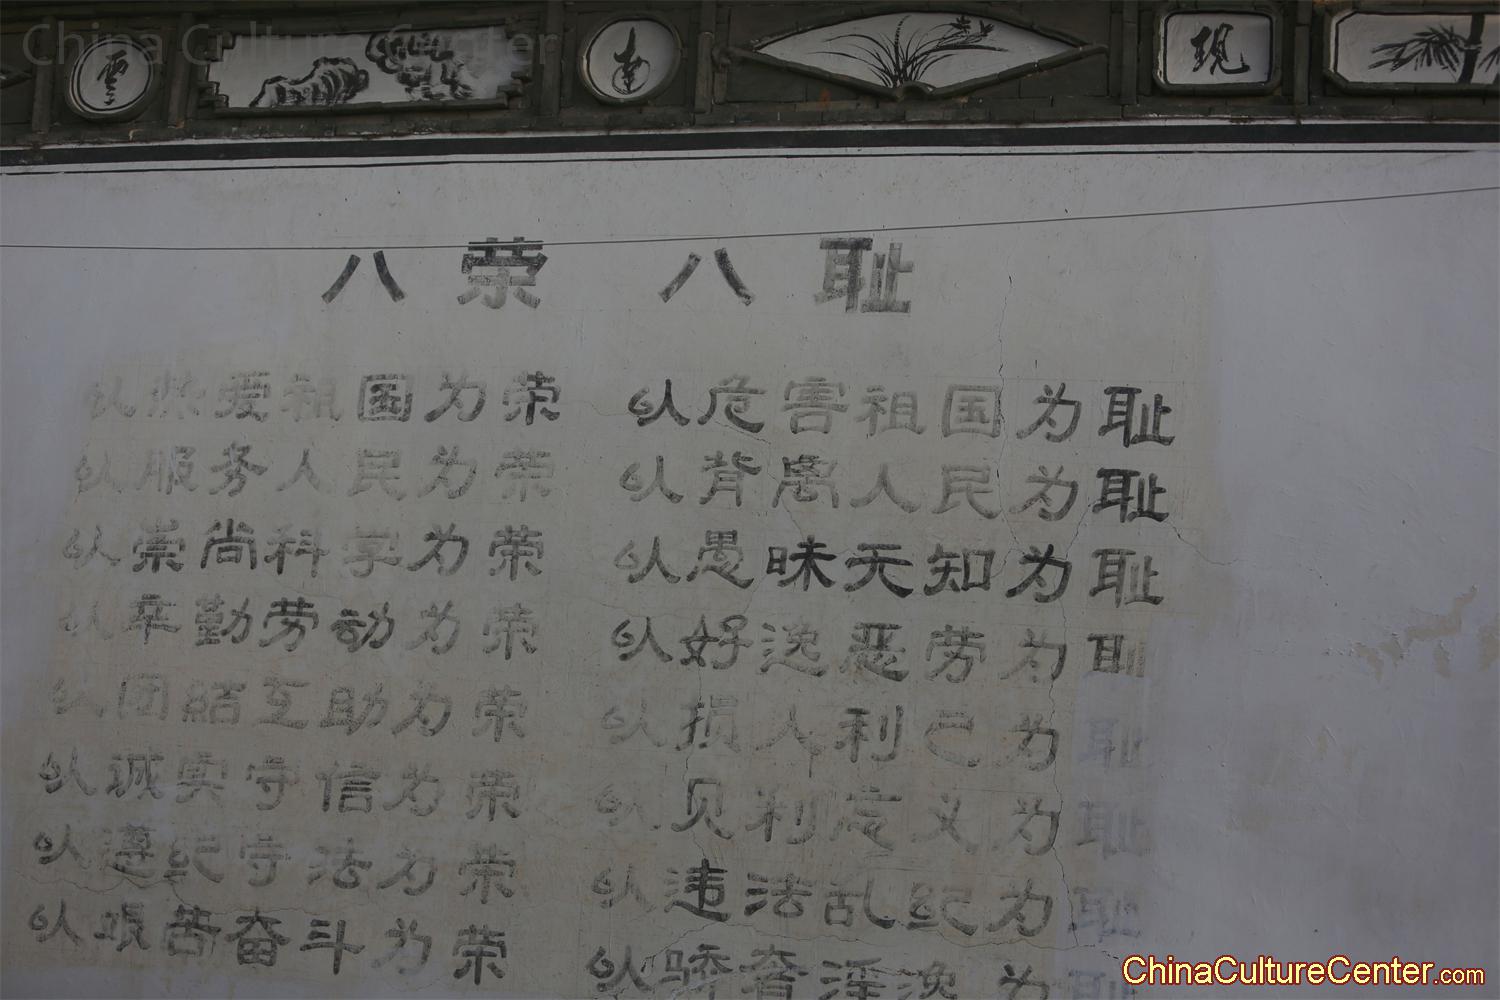 China Culture Center
雲 南 现
八荣八耻
以热爱祖国为荣 以危害祖国为耻
以服务人民为荣 以背离人民为耻
以崇尚科学为荣 以愚昧无知为耻
以辛勤劳动为荣 以好逸恶劳为耻
以团結互助为荣 以损人利己为耻
以诚实守信为荣 以见利忘义为耻
以遵纪守法为荣 以违法乱纪为耻
以艰苦奋斗为荣 以骄奢淫逸为耻
ChinaCultureCenter.com